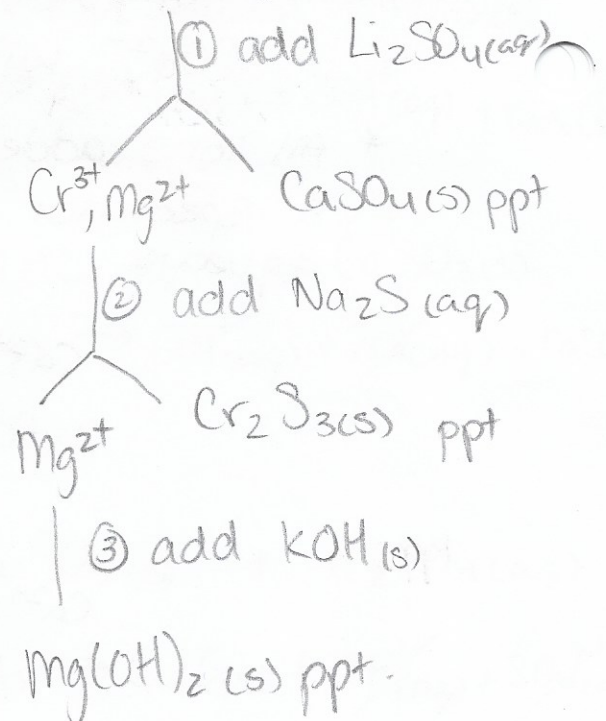 ① add Li₂SO₄(aq)
Cr³⁺, Mg²⁺ CaSO₄(s) ppt
② add Na₂S (aq)
Mg²⁺ Cr₂S₃(s) ppt
③ add KOH (s)
Mg(OH)₂ (s) ppt.